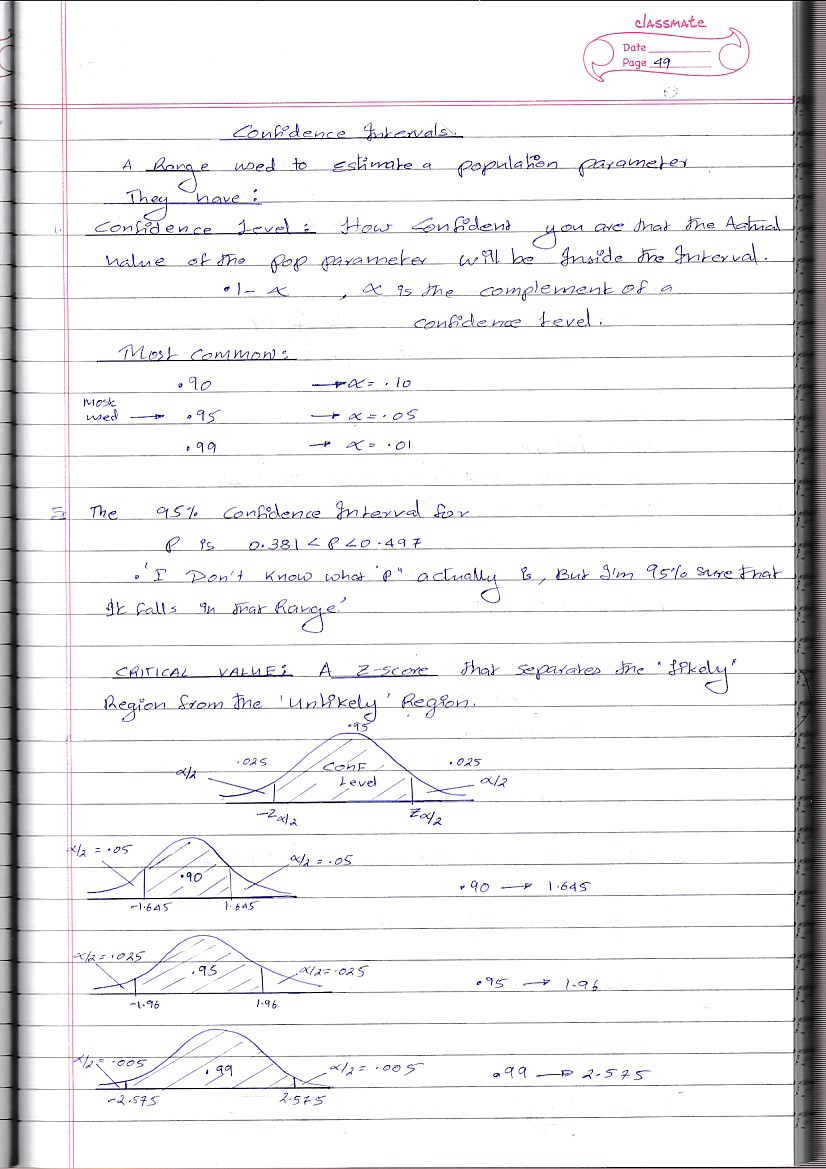 classmate
Date
Page 49
Confidence Intervals.
A Range used to Estimate a population parameter
They have:
1. Confidence Level: How Confident you are that the Actual
Value of the pop parameter will be Inside the Interval.
•1- α , α is the complement of a
confidence Level.
Most common:
.90 → α = .10
Most
used → .95 → α = .05
.99 → α = .01
The 95% Confidence Interval for
P is 0.381 < P < 0.497
• 'I Don't Know what "P" actually is, But I'm 95% sure that
It falls in that Range.'
CRITICAL VALUE: A Z-score that separates the 'Likely'
Region from the 'Unlikely' Region.
.95
α/2 .025 Conf .025
Level α/2
-Zα/2 Zα/2
α/2 = .05 α/2 = .05
.90 .90 → 1.645
-1.645 1.645
α/2 = .025 .95 α/2 = .025
.95 → 1.96
-1.96 1.96
α/2 = .005 .99 α/2 = .005
.99 → 2.575
-2.575 2.575